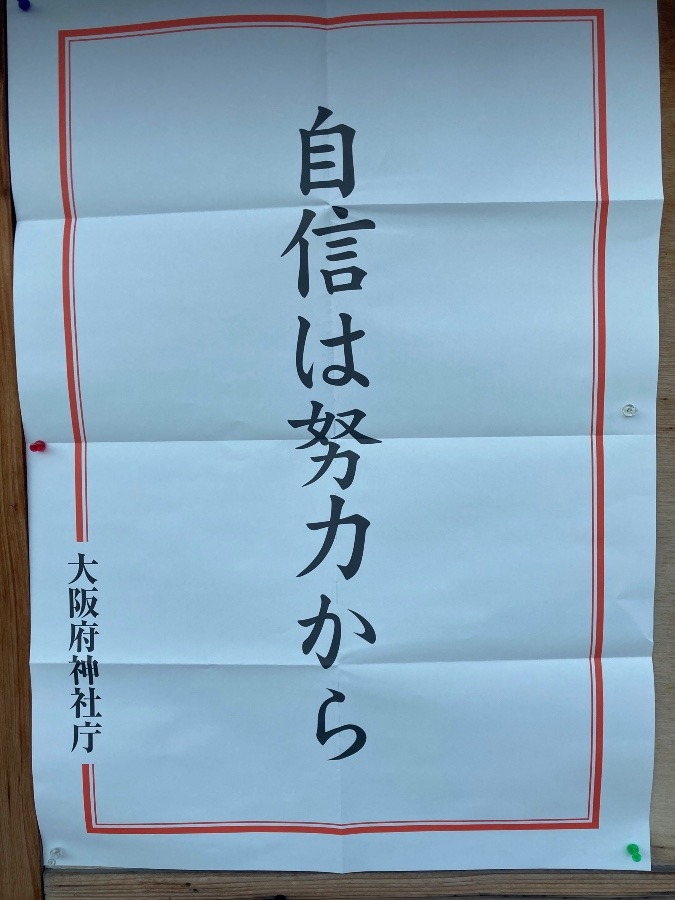 自信は努力から
大阪府神社庁